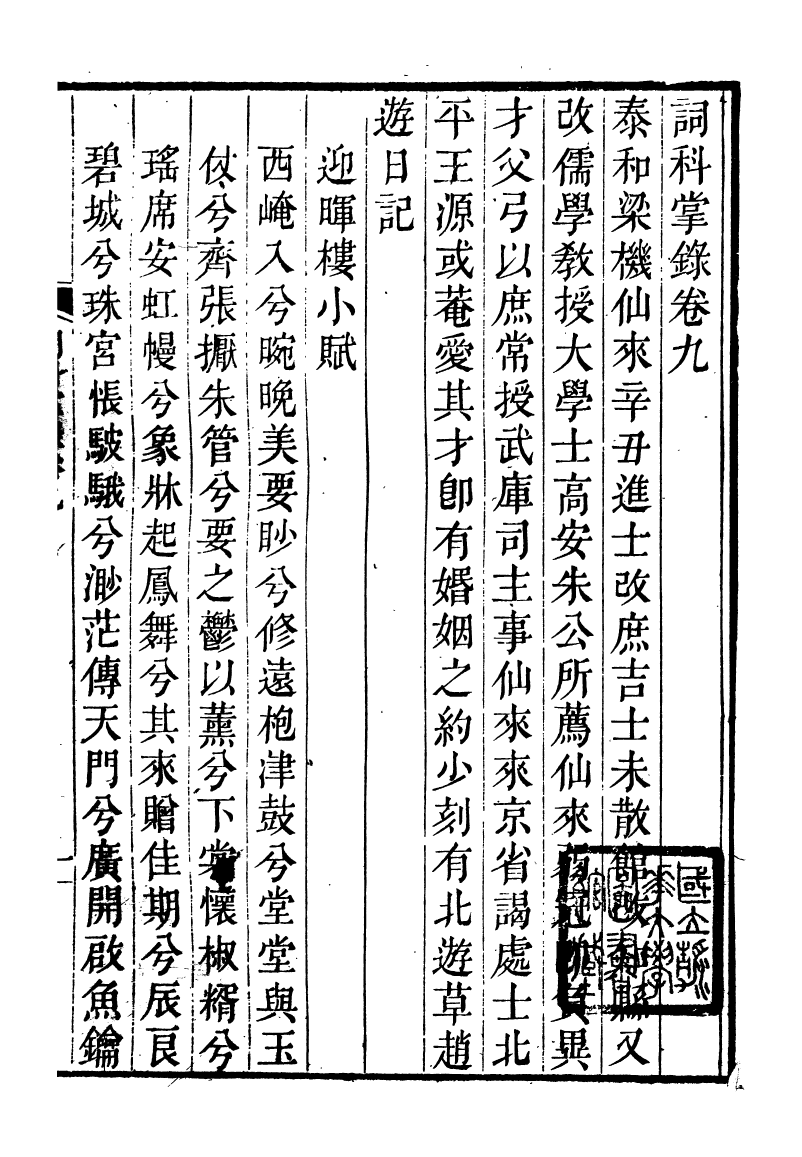 詞科掌錄卷九
泰和梁機仙來辛丑進士改庶吉士未散館改知縣又
改儒學敎授大學士高安朱公所薦仙來弱冠負異
才父弓以庶常授武庫司主事仙來來京省謁處士北
平王源或菴愛其才卽有婚姻之約少刻有北遊草趙
遊日記
迎暉樓小賦
西崦入兮晼晚美要眇兮修遠枹津鼓兮堂堂與玉
仗兮齊張擫朱管兮要之鬱以薰兮下裳懷椒糈兮
瑤席安虹幔兮象牀起鳳舞兮其來贈佳期兮辰良
碧城兮珠宮悵駊騀兮渺茫傳天門兮廣開啟魚鑰